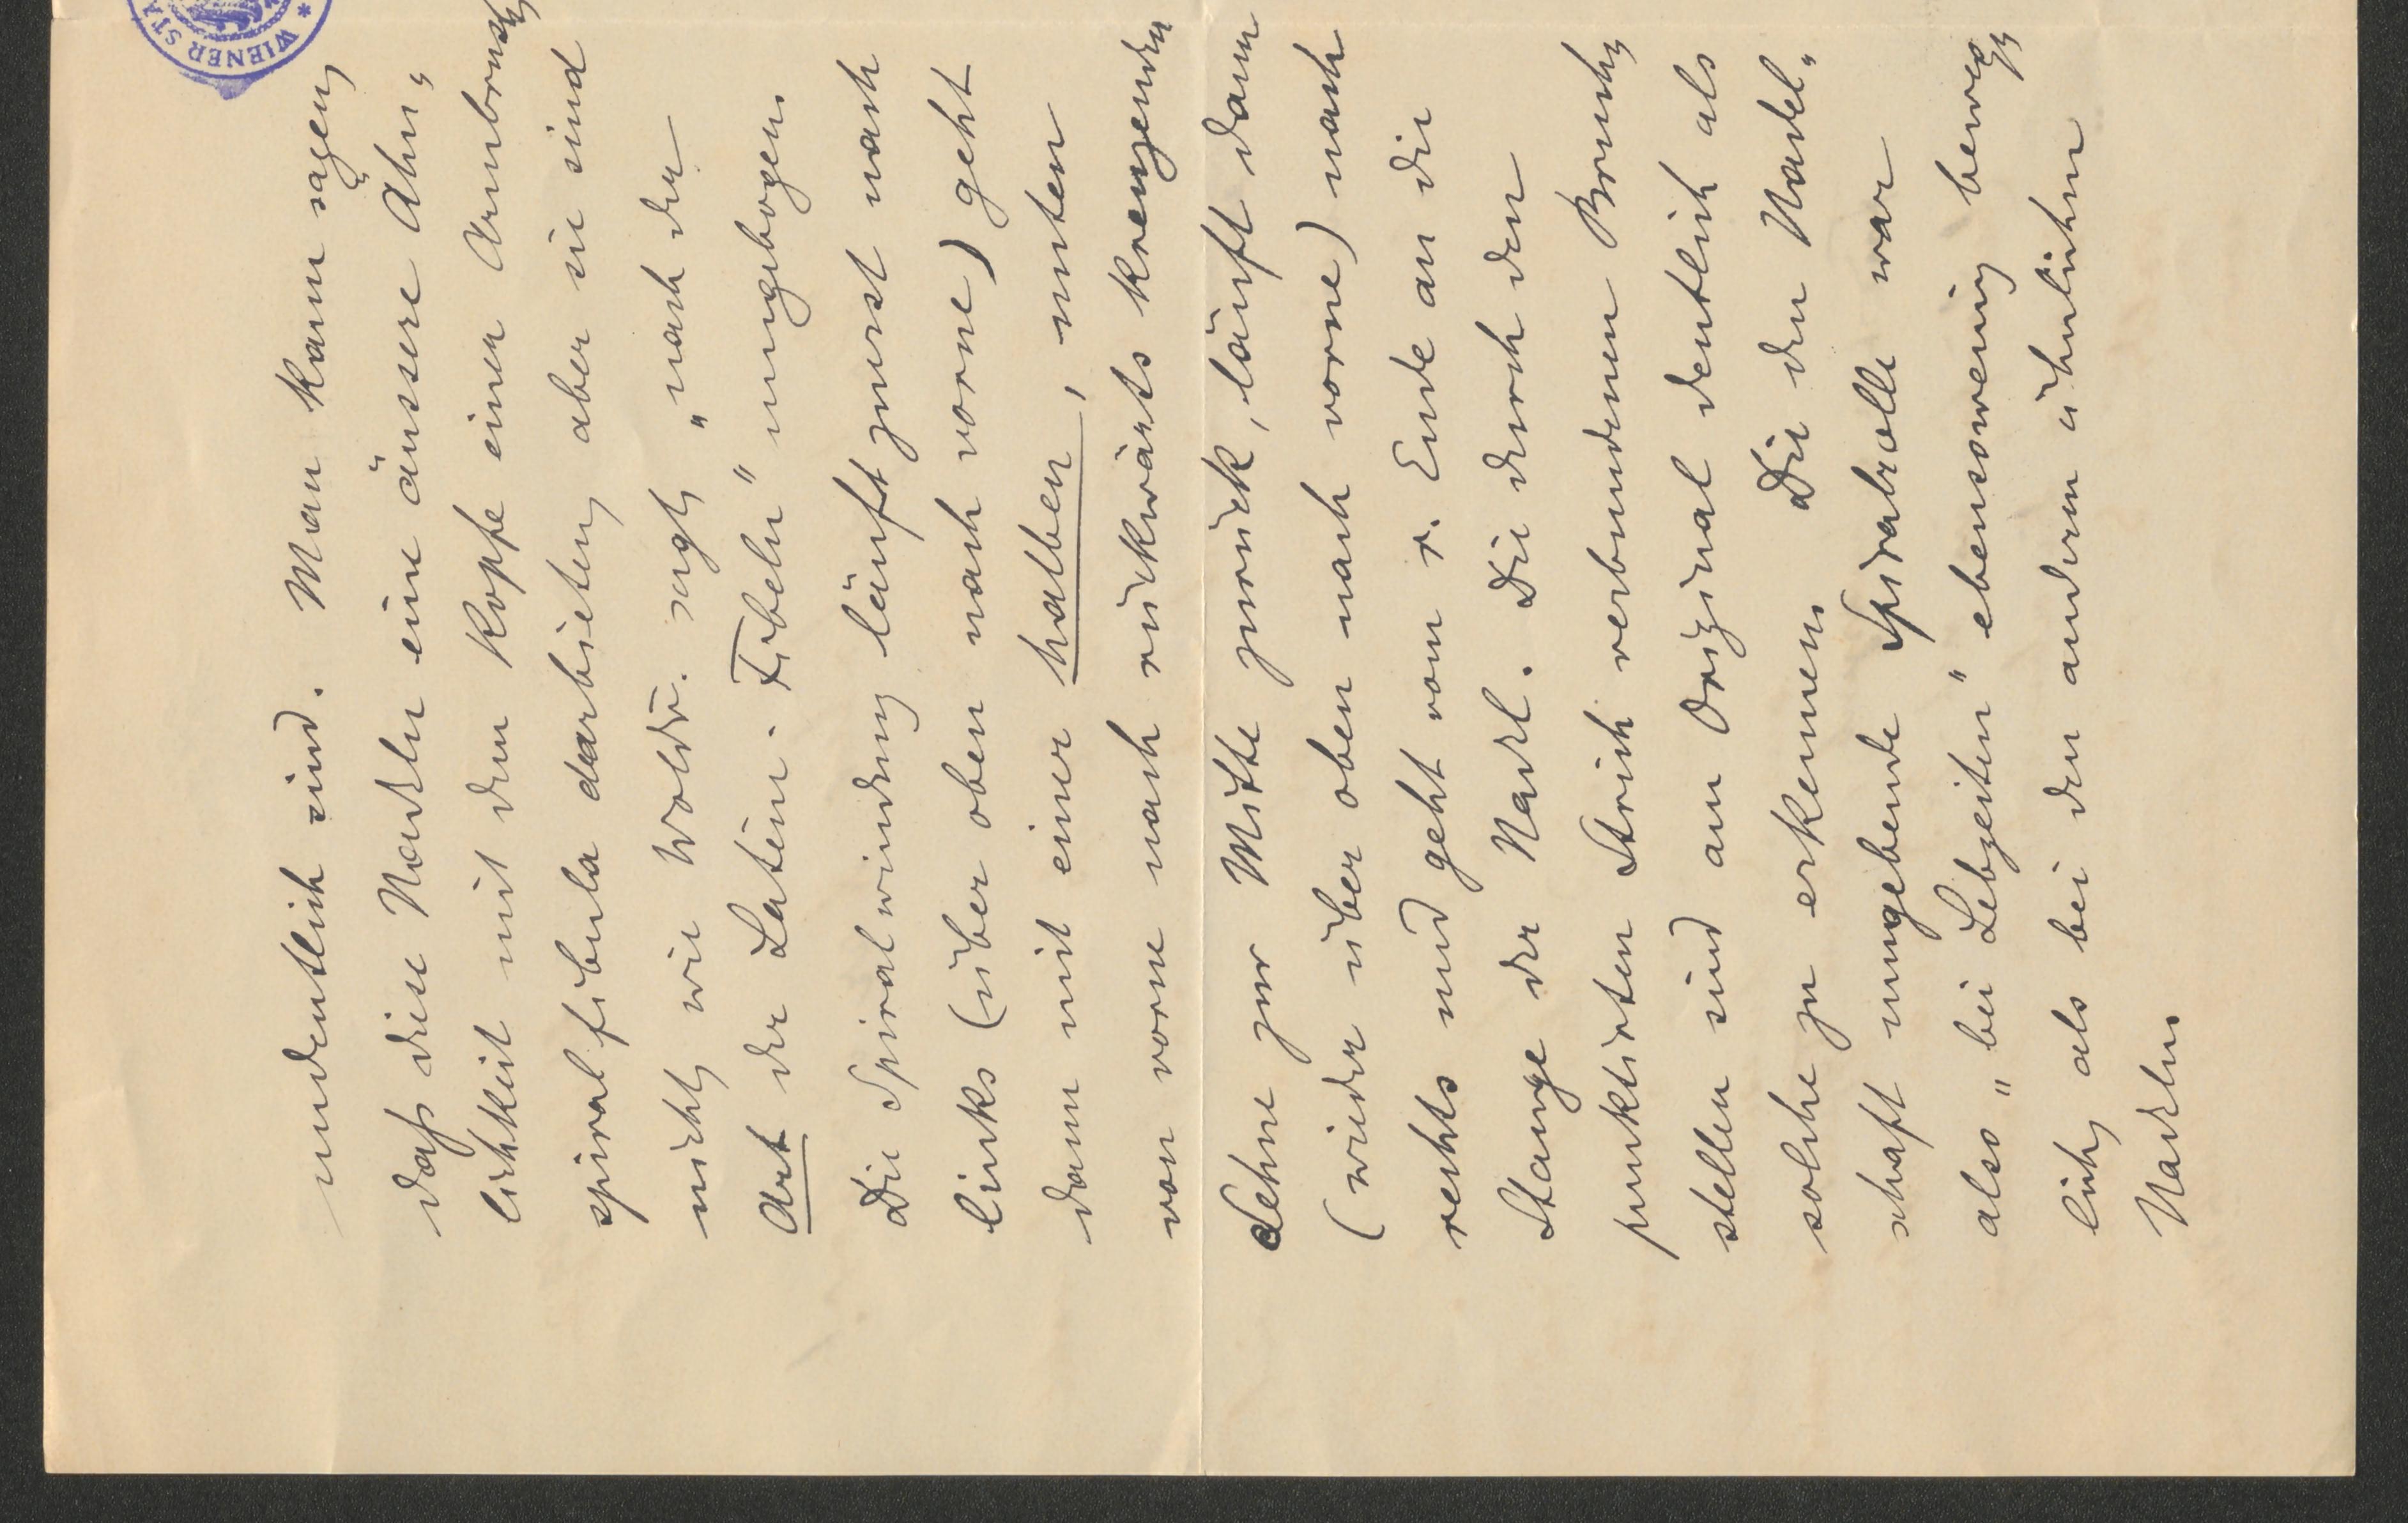 WIENER STA
undeutlich sind. Man kann sagen,
daß diese Nadeln eine äussere Ähn„
lichkeit mit dem Kopfe einer Armbrust„
spiralfibula darbieten, aber sie sind
nicht, wie Woldř. sagt, „nach der
Art der Latène-Fibeln" umgebogen.
Die Spiralwindung läuft zuerst nach
links (über oben nach vorne) geht
dann mit einer halben, unten
von vorne nach rückwärts kreuzenden
Sehne zur Mitte zurück, läuft dann
(wieder über oben nach vorne) nach
rechts und geht vom r. Ende an die
Stange der Nadel. Die durch den
punktirten Strich verbundenen Bruch„
stellen sind am Original deutlich als
solche zu erkennen. Die den Nadel„
schaft umgebende Spiralrolle war
also „bei Lebzeiten" ebensowenig beweg„
lich, als bei den anderen ähnlichen
Nadeln.